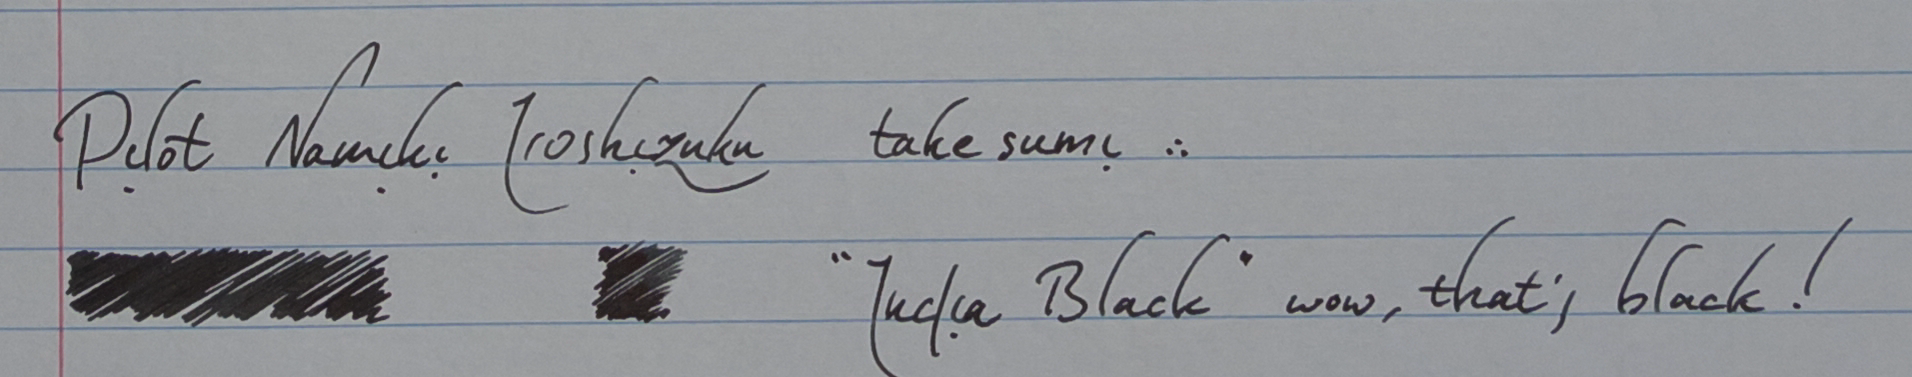 Pilot Namiki Iroshizuku take sumi ∴
"India Black" wow, that's black!